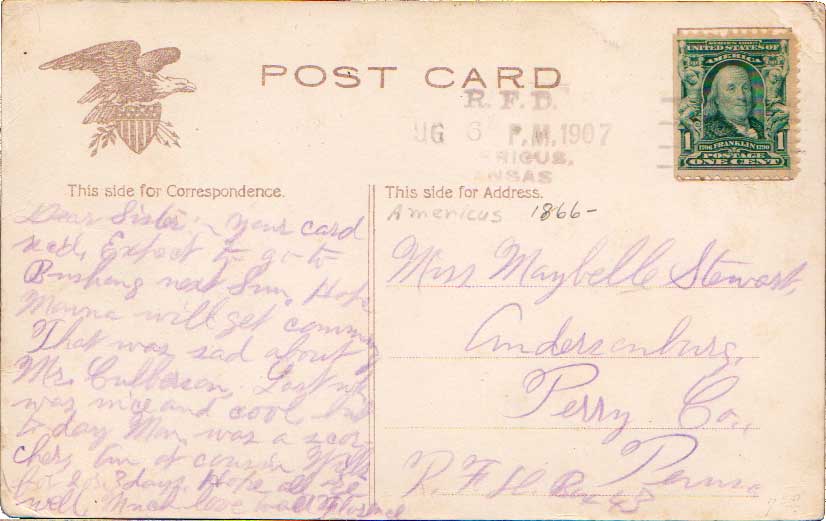 POST CARD
R. F. D.
UG 6 P.M. 1907
RICUS,
ANSAS
SERIES 1902
UNITED STATES OF
AMERICA
1 1
1706 FRANKLIN 1790
POSTAGE
ONE CENT
This side for Correspondence.
Dear Sister:- Your card
recd. Expect to go to
Bushong next Sun. Hope
Mamma will get
That was sad about
Mr. Culberson. Last
was nice and cool, but
to day was a scor-
cher. Am at cousin
for 2 or 3 days. Hope all are
well. Much love
This side for Address.
Americus 1866-
Miss Maybelle Stewart,
Andersonburg,
Perry Co.,
Penna
R. F. D. Box 48